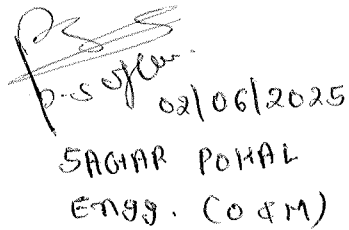 02/06/2025
SAGAR POKAL
Engg. (O & M)